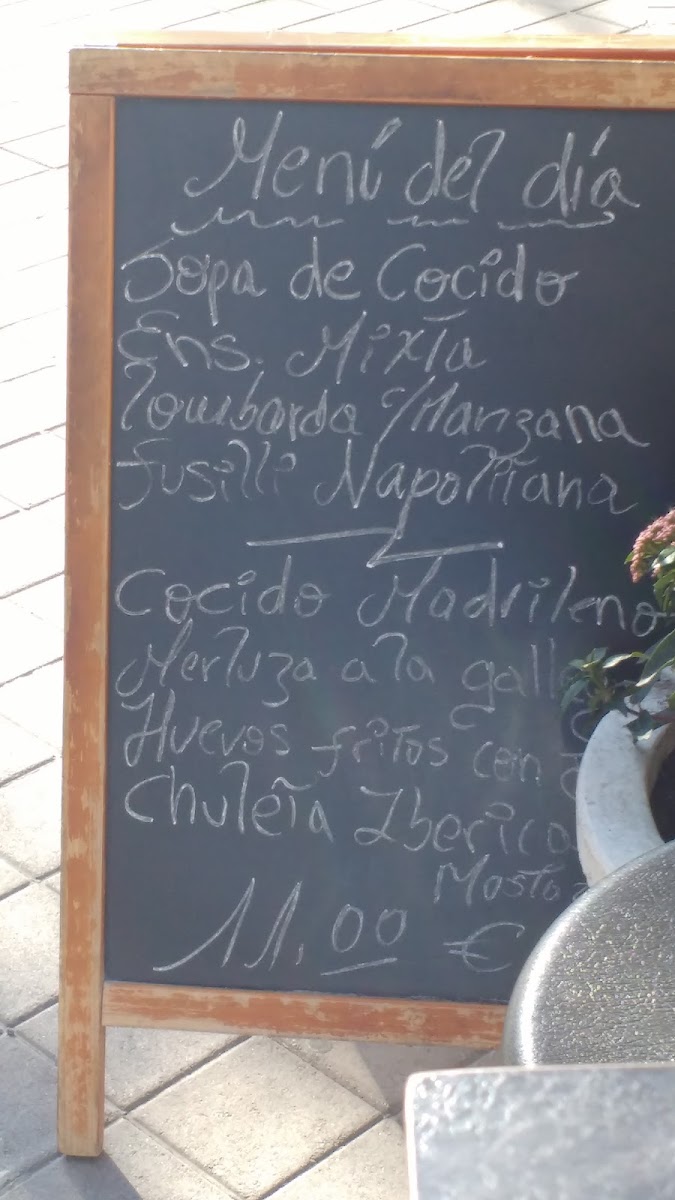 Mení del día
Sopa de Cocido
Ens. Mixta
Lombarda c/Manzana
Fusilli Napolitana
Cocido Madrileno
Merluza a la
Huevos fritos con
Chuleta
11.00 €